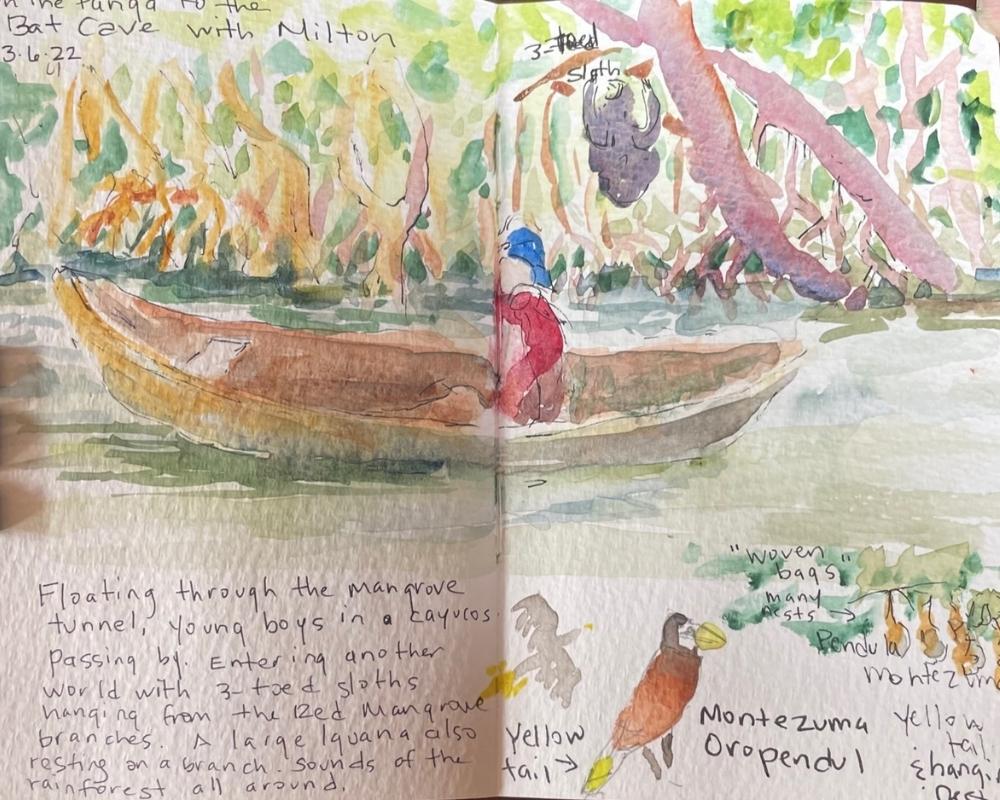 in the panga to the
Bat Cave with Milton
3.6.22
3-toed
sloth
Floating through the mangrove
tunnel, young boys in a cayucos
passing by. Entering another
world with 3-toed sloths
hanging from the Red Mangrove
branches. A large Iguana also
resting on a branch. Sounds of the
rainforest all around.
"woven"
bags
many
nests →
Pendula
Montezum
Yellow
tail →
Montezuma
Oropendul
yellow
tail
& hangi
nest